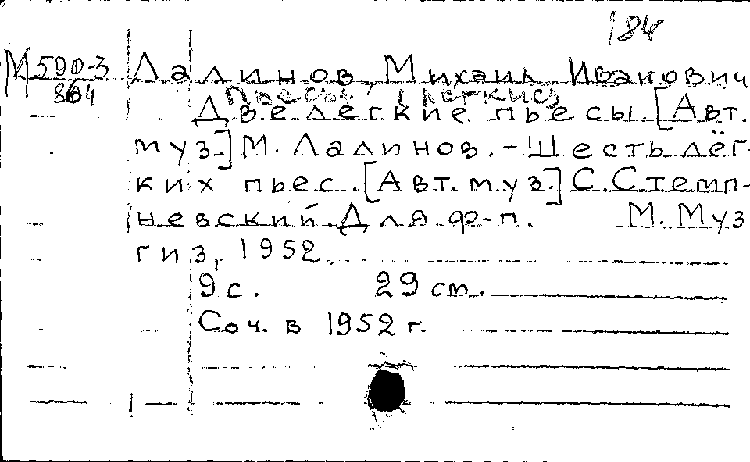 184
М 590-3 Лалинов, Михаил Иванович
864 Пьесы (легкие)
Две легкие пьесы. [Авт.
муз.] М. Лалинов. - Шесть лёг-
ких пьес. [Авт. муз.] С. Стемп-
невский. Для ф-п. М. Муз
гиз, 1952.
9 с. 29 см.
Соч. в 1952 г.